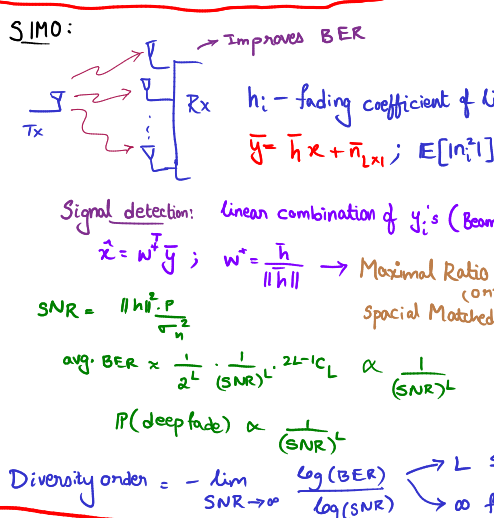 SIMO:
→ Improves BER
Tx
Rx
hᵢ – fading coefficient of
ȳ = h̄ x + n̄_{L×1} ; E[|nᵢ²|]
Signal detection: linear combination of yᵢ's (Beam
x̂ = w̄ᵀ ȳ ; w* = h̄ / ||h̄|| → Maximal Ratio
(or
Spacial Matched
SNR = ||h||² · P / σₙ²
avg. BER ≈ 1/2^L · 1/(SNR)^L · ^{2L-1}C_L ∝ 1/(SNR)^L
P(deep fade) ∝ 1/(SNR)^L
Diversity order = - lim_{SNR→∞} log(BER) / log(SNR) → L
→ ∞